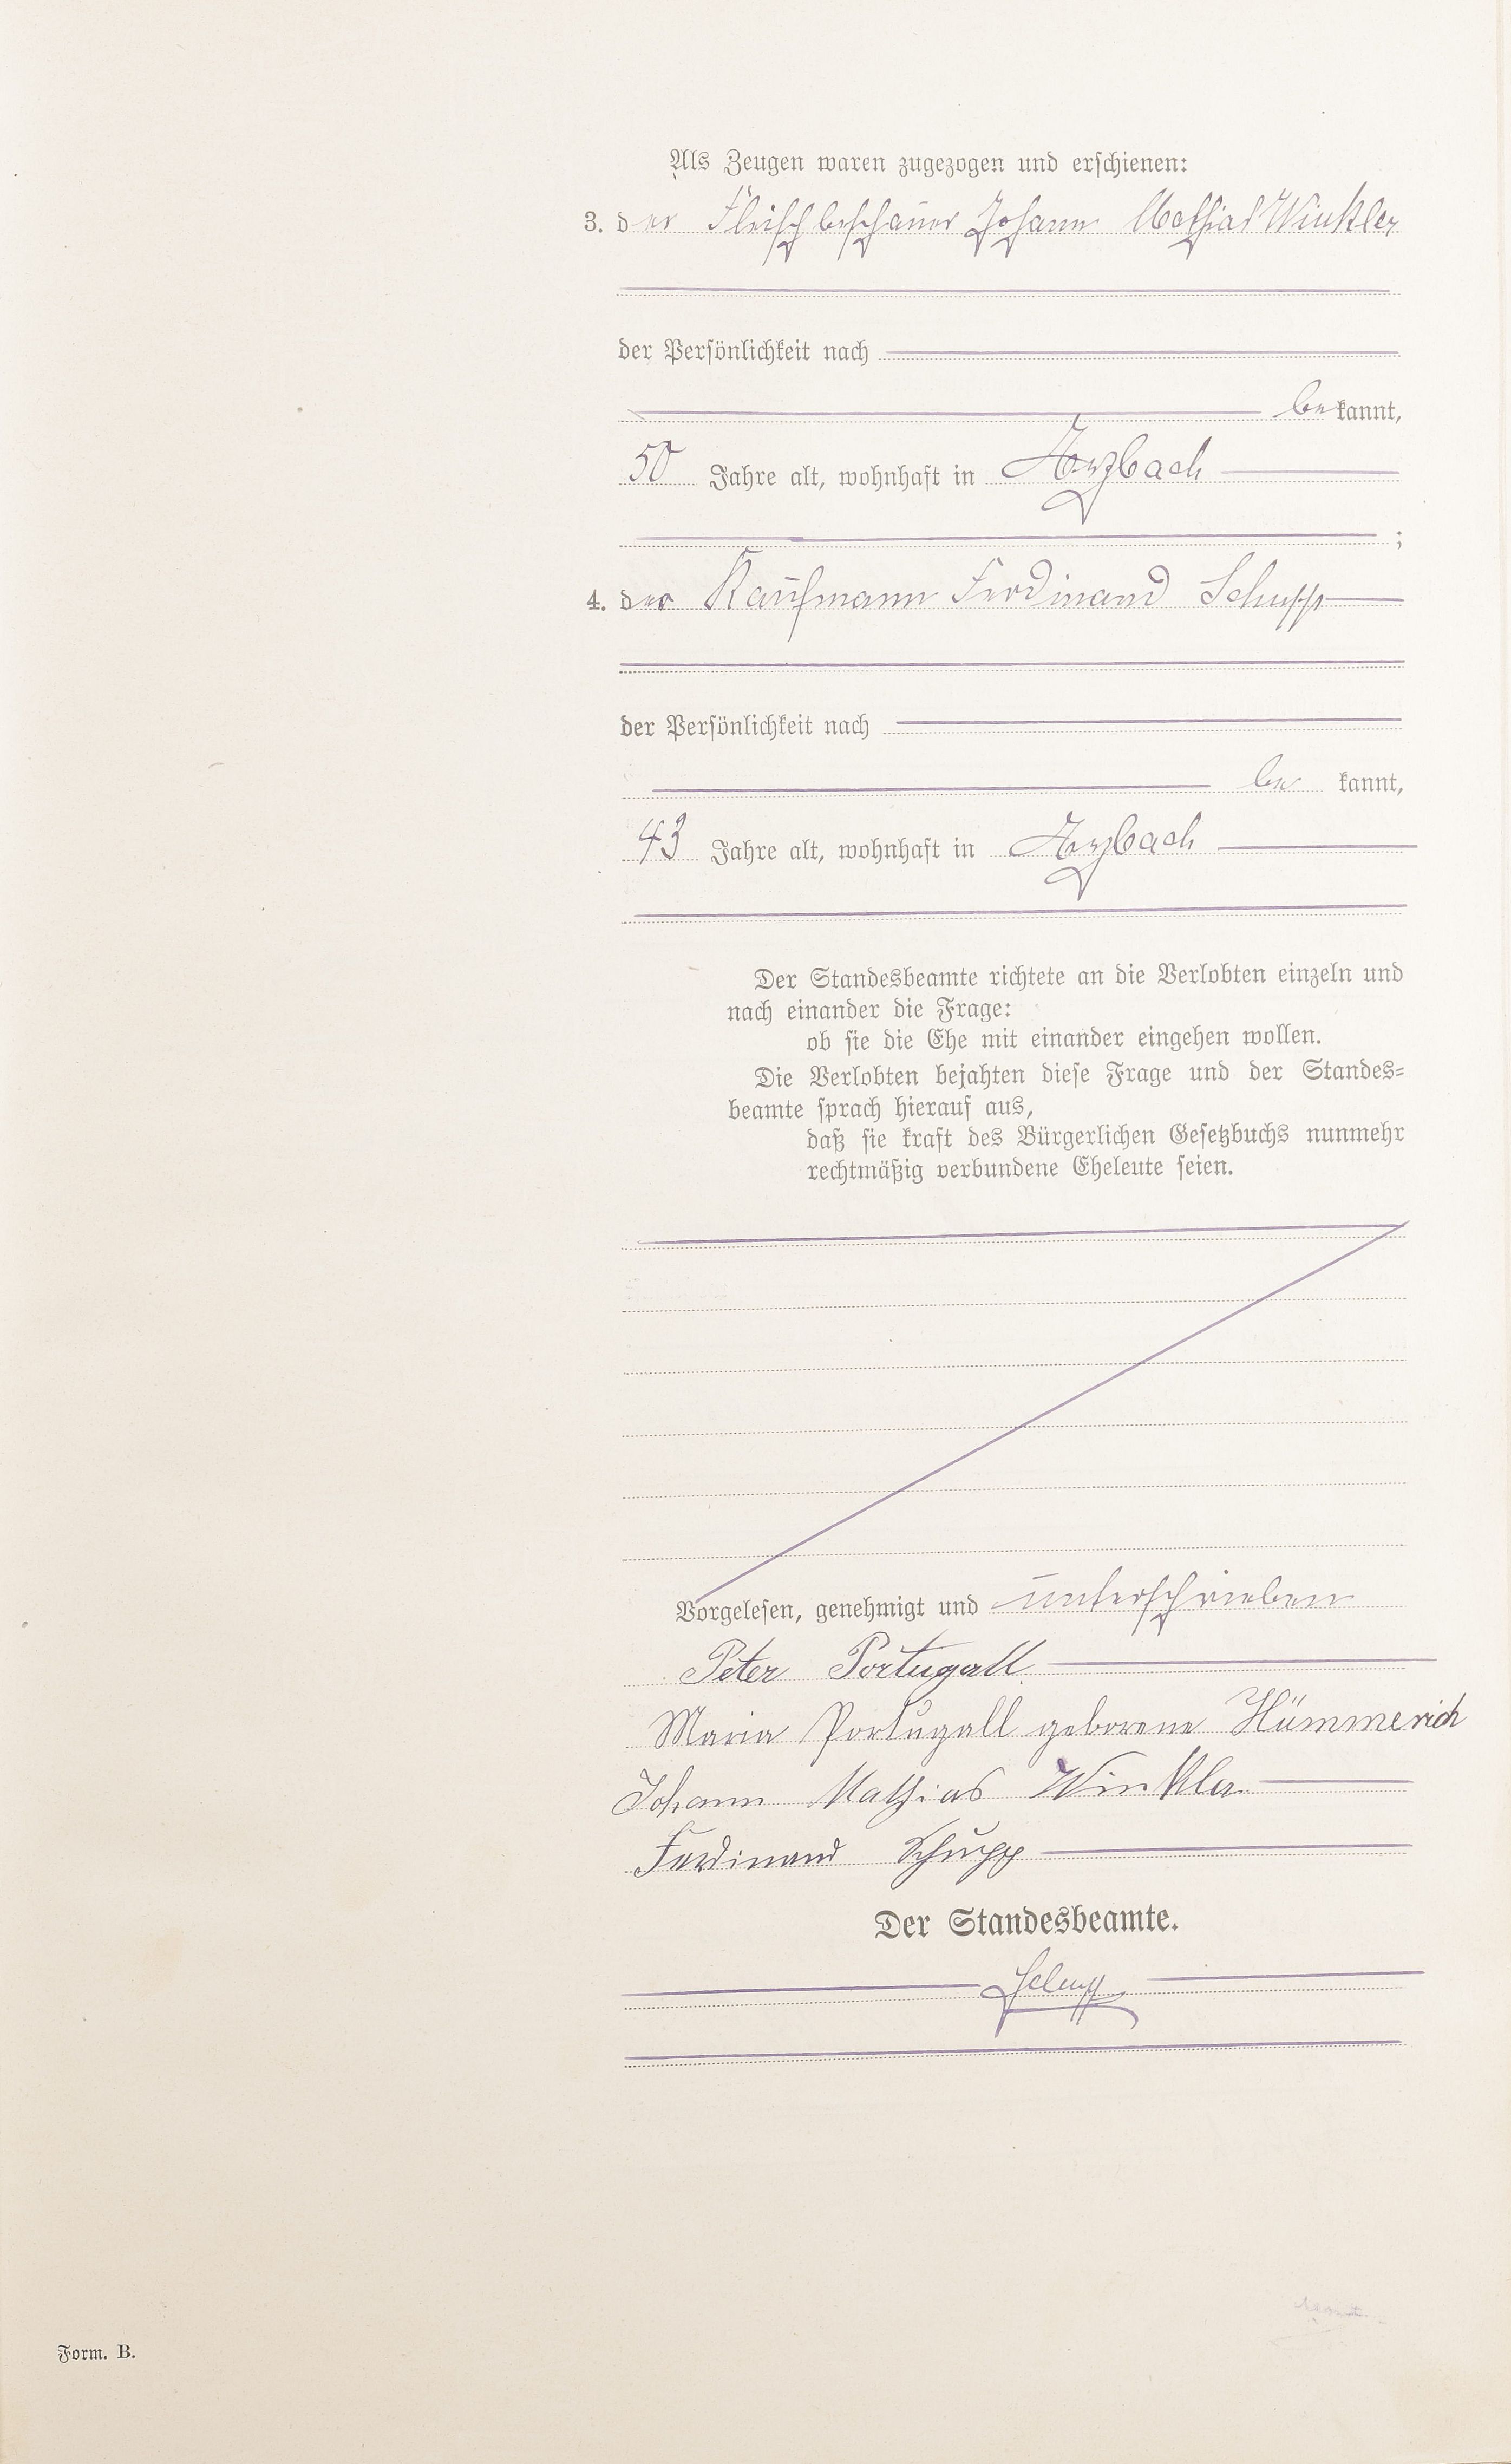 Als Zeugen waren zugezogen und erschienen:
3. der Fleischbeschauer Johann Mathias Winkler
der Persönlichkeit nach
bekannt,
50 Jahre alt, wohnhaft in Arzbach
;
4. der Kaufmann Ferdinand Schupp
der Persönlichkeit nach
be kannt,
43 Jahre alt, wohnhaft in Arzbach
Der Standesbeamte richtete an die Verlobten einzeln und
nach einander die Frage:
ob sie die Ehe mit einander eingehen wollen.
Die Verlobten bejahten diese Frage und der Standes=
beamte sprach hierauf aus,
daß sie kraft des Bürgerlichen Gesetzbuchs nunmehr
rechtmäßig verbundene Eheleute seien.
Vorgelesen, genehmigt und unterschrieben
Peter Portugall
Maria Portugall geborene Hümmerich
Johann Mathias Winkler
Ferdinand Schupp
Der Standesbeamte.
Schupp
Form. B.